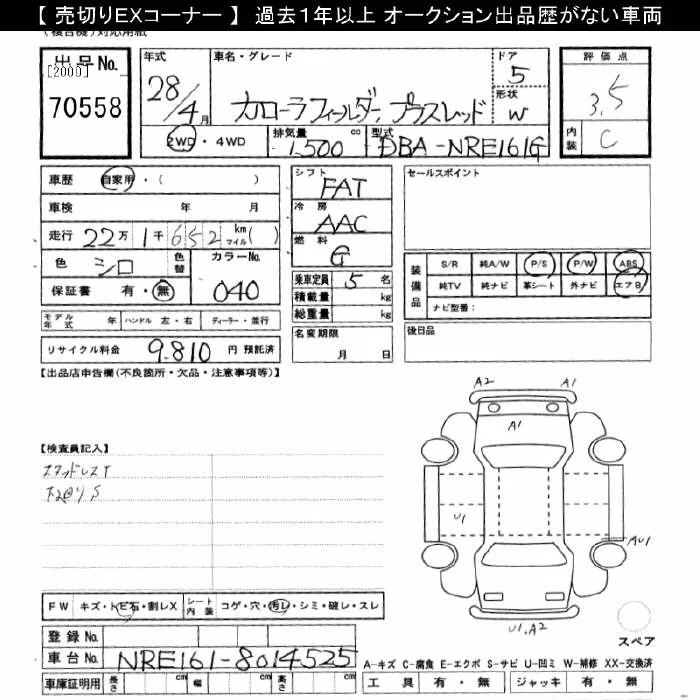 【 売切りEXコーナー 】 過去1年以上 オークション出品歴がない車両
(複合機)対応用紙
出品No.
[2000]
70558
年式
28/4月
車名・グレード
カローラフィールダー プラスレッド
ドア
5
形状
W
2WD・4WD
排気量
1,500 cc
型式
DBA-NRE161G
評価点
3.5
内装
C
車歴 自家用・( )
車検 年 月
走行 22万 1千 652 km マイル( )
色 シロ
色替
カラーNo.
040
保証書 有・無
モデル年式 年 ハンドル 左・右 ディーラー・並行
リサイクル料金 9.810 円 預託済
シフト
FAT
冷房
AAC
燃料
G
乗車定員 5 名
積載量 kg
総重量 kg
名変期限
月 日
セールスポイント
装備品
S/R 純A/W P/S P/W ABS
純TV 純ナビ 革シート 外ナビ エアB
ナビ型番:
後日品
【出品店申告欄(不良箇所・欠品・注意事項等)】
【検査員記入】
スタッドレスT
下廻りS
A2 A1
A1
U1
AU1
U1,A2
スペア
FW キズ・トビ石・割レX
シート内装 コゲ・穴・汚レ・シミ・破レ・スレ
登録No.
車台No. NRE161-8014525
車庫証明用 長さ cm 幅 cm 高さ cm
A-キズ C-腐食 E-エクボ S-サビ U-凹ミ W-補修 XX-交換済
工具 有・無 ジャッキ 有・無